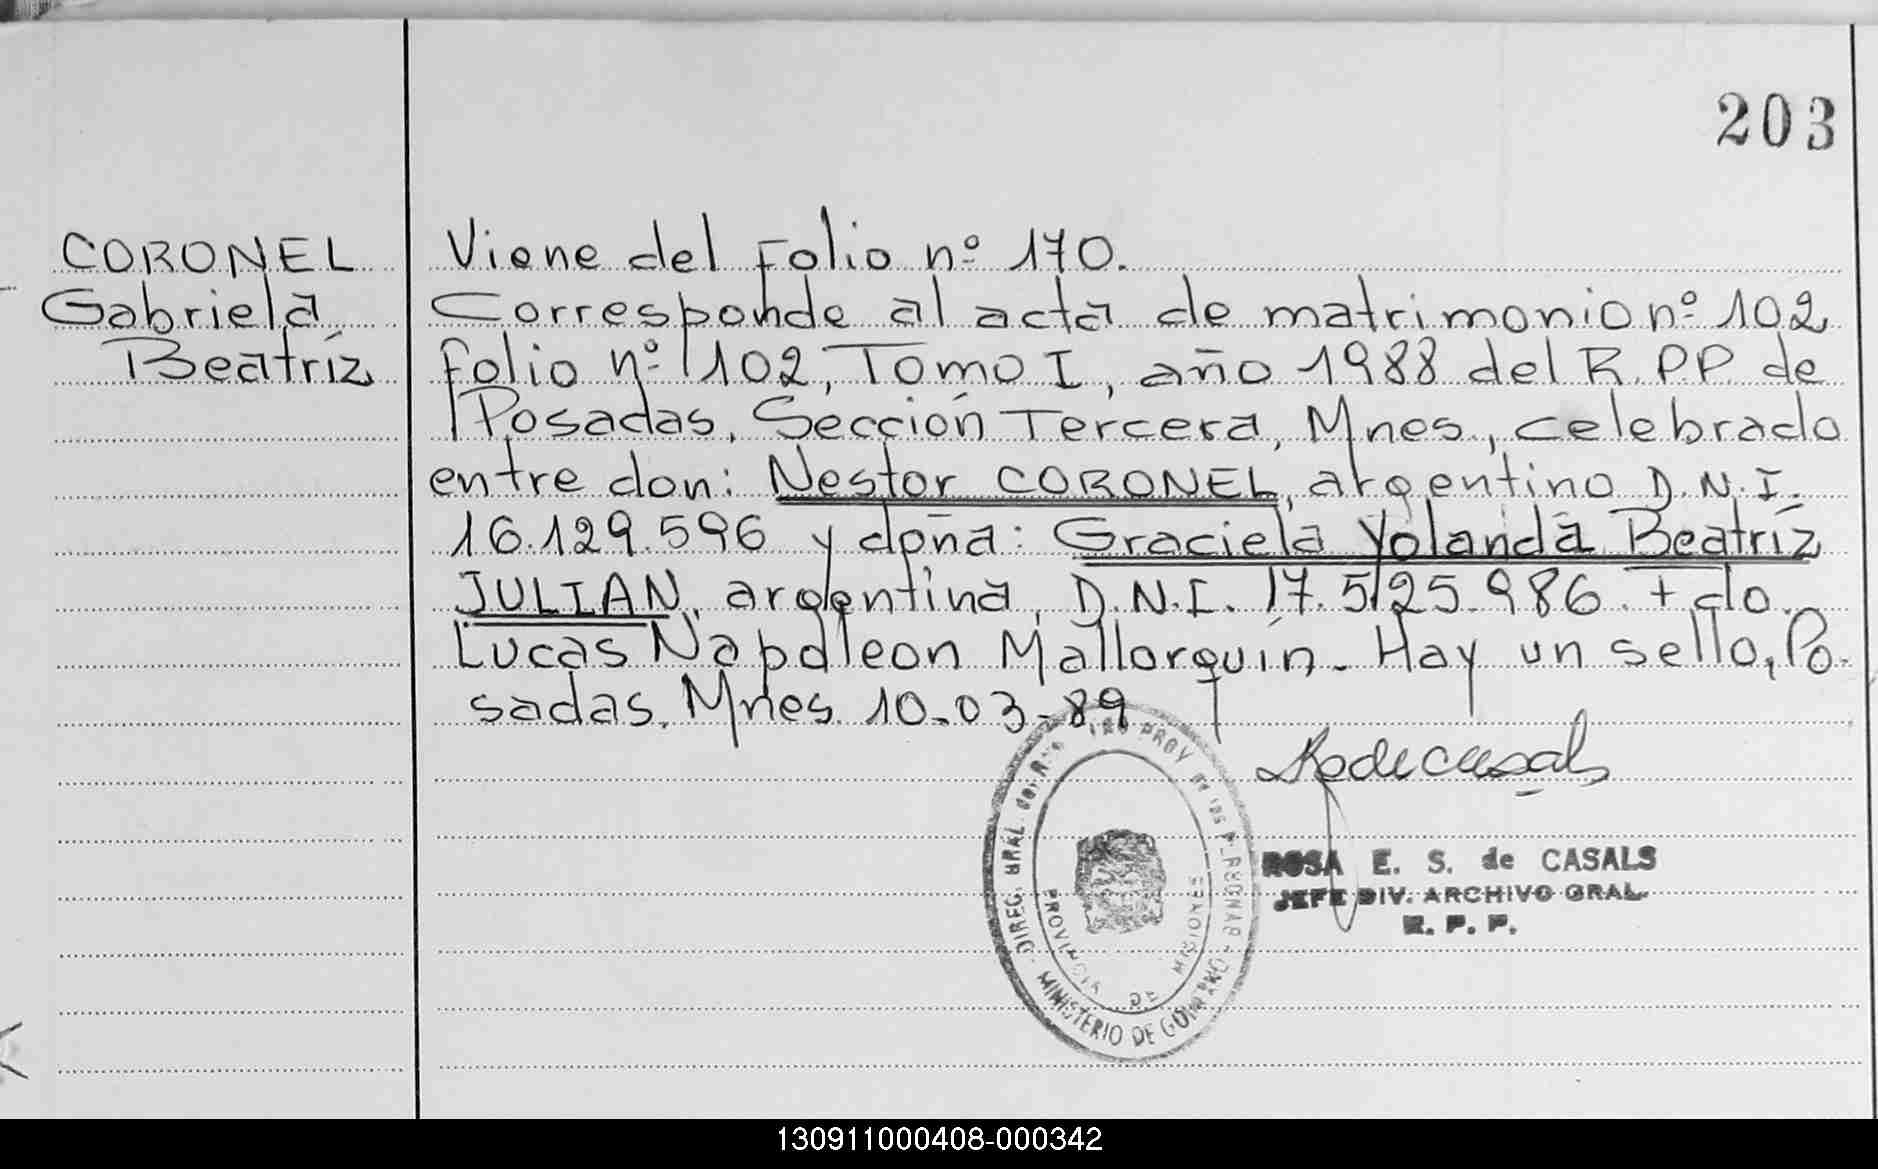 203
CORONEL
Gabriela
Beatríz
Viene del Folio nº 170.
Corresponde al acta de matrimonio nº 102
folio nº 102, Tomo I, año 1988 del R.P.P. de
Posadas, Sección Tercera, Mnes., celebrado
entre don: Nestor CORONEL, argentino D.N.I.
16.129.596 y doña: Graciela Yolanda Beatríz
JULIAN, argentina, D.N.I. 17.525.986. + do.
Lucas Napoleon Mallorquín. Hay un sello, Po-
sadas, Mnes. 10-03-89
DIREC. GRAL. PROV. DE LAS
MINISTERIO DE
PROVINCIA DE MISIONES
ROSA E. S. de CASALS
JEFE DIV. ARCHIVO GRAL.
R. P. P.
130911000408-000342